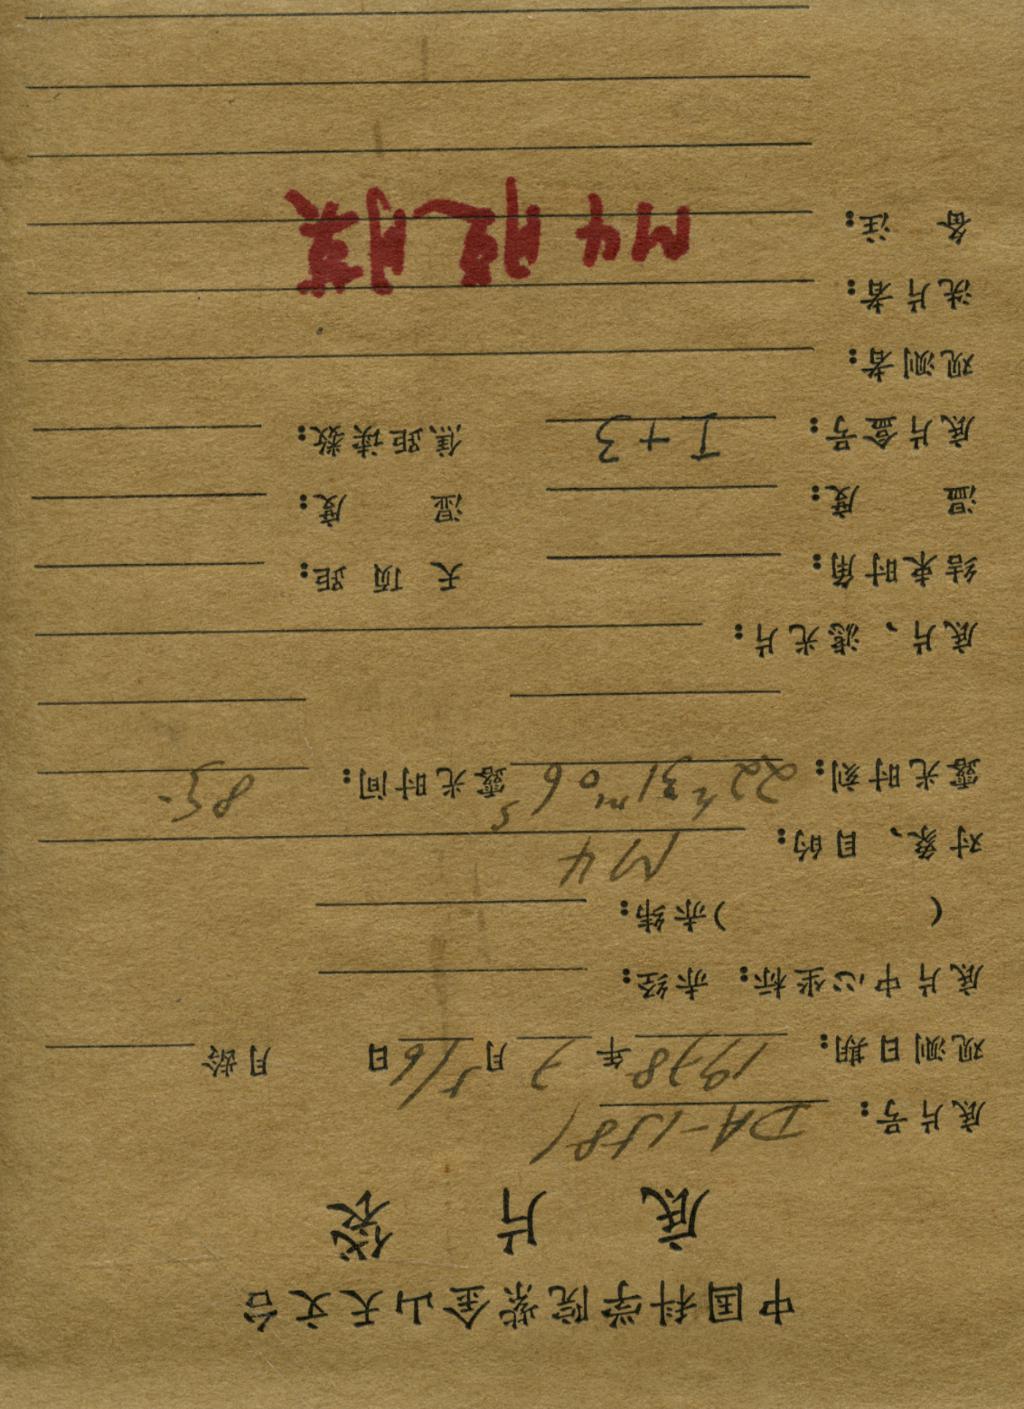 中国科学院紫金山天文台
底片袋
底片号: DA-1581
观测日期: 1978年7月5/6日 月龄
底片中心坐标: 赤经:
( )赤纬:
对象、目的: M4
露光时刻: 22h31m06s 露光时间: 85
底片、滤光片:
结束时角: 天顶距:
温度: 湿度:
底片盒号: I+3 焦距读数:
观测者:
洗片者:
备注: M4 脱膜